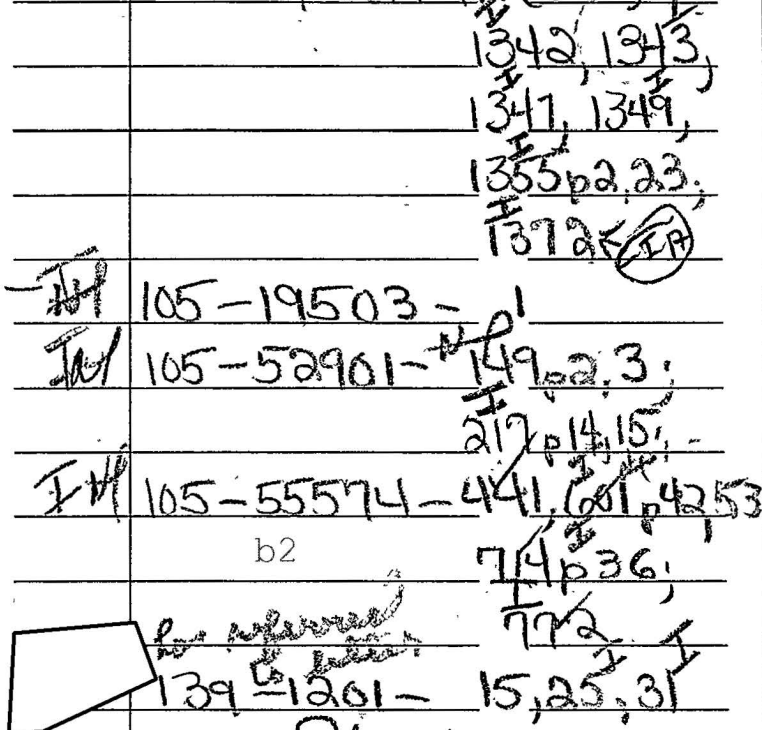 I
1342, 1343,
I I
1347, 1349,
I
1355 p2,23;
I
1372 < IA
105-19503- 1
105-52901- 149 p2,3;
I
217 p14,15;
I 105-55574- 441, 601 p42,53
I
b2 714 p36;
I
772
referred
I I
139-1201- 15,25,31